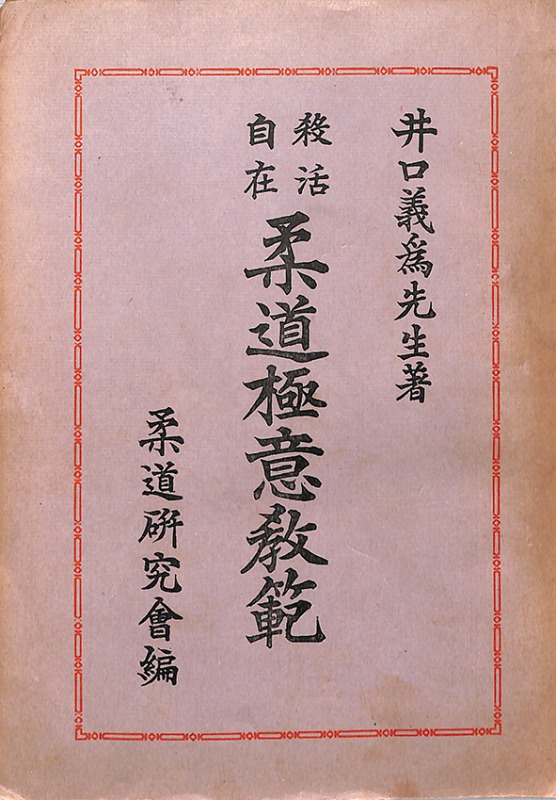 井口義爲先生著
殺活
自在
柔道極意教範
柔道研究會編